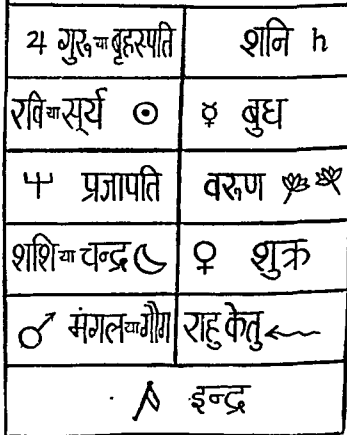 ♃ गुरु या बृहस्पति शनि ♄
रवि या सूर्य ☉ ☿ बुध
प्रजापति वरुण
शशि या चन्द्र ☾ ♀ शुक्र
♂ मंगल या गौग राहु केतु
इन्द्र